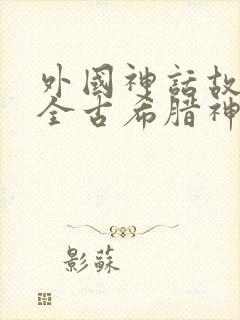 外國神話故
全古希腊神
影蘇